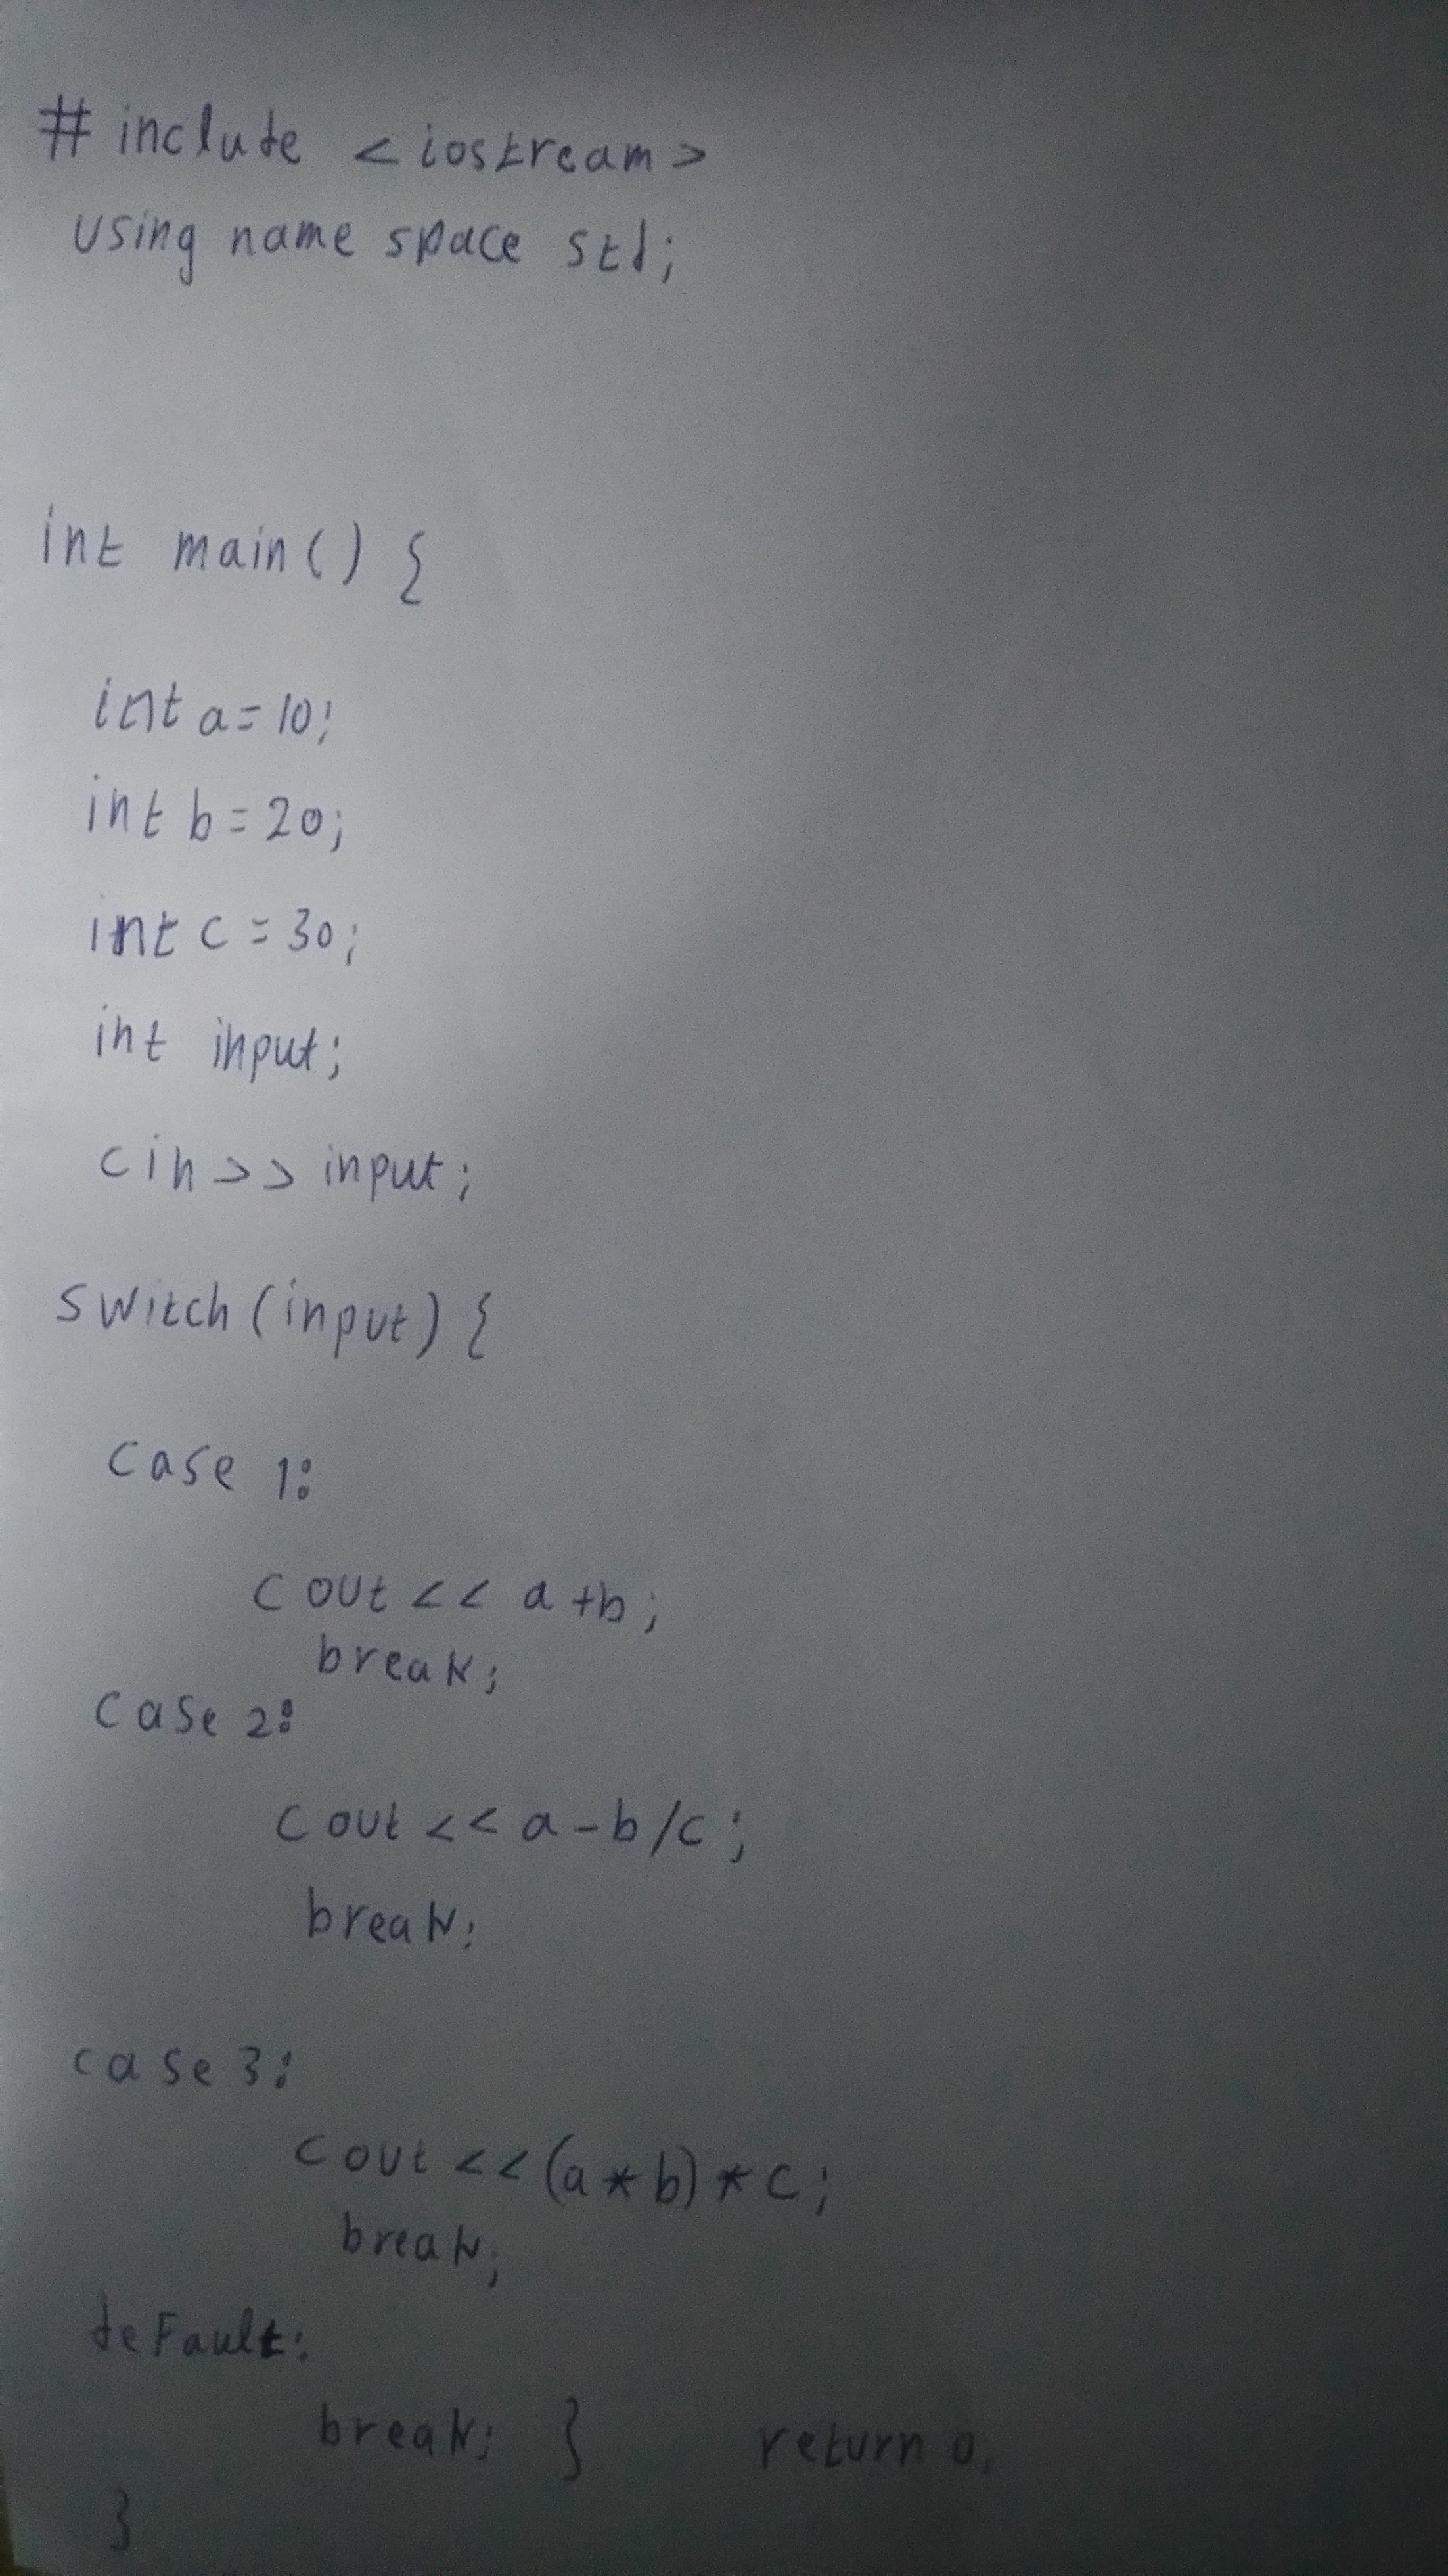 # include <iostream>
using name space std;
int main() {
int a=10;
int b=20;
int c=30;
int input;
cin>> input;
switch(input) {
case 1:
cout << a+b;
break;
case 2:
cout << a-b/c;
break;
case 3:
cout <<(a*b)*c;
break;
deFault:
break; } return 0;
}